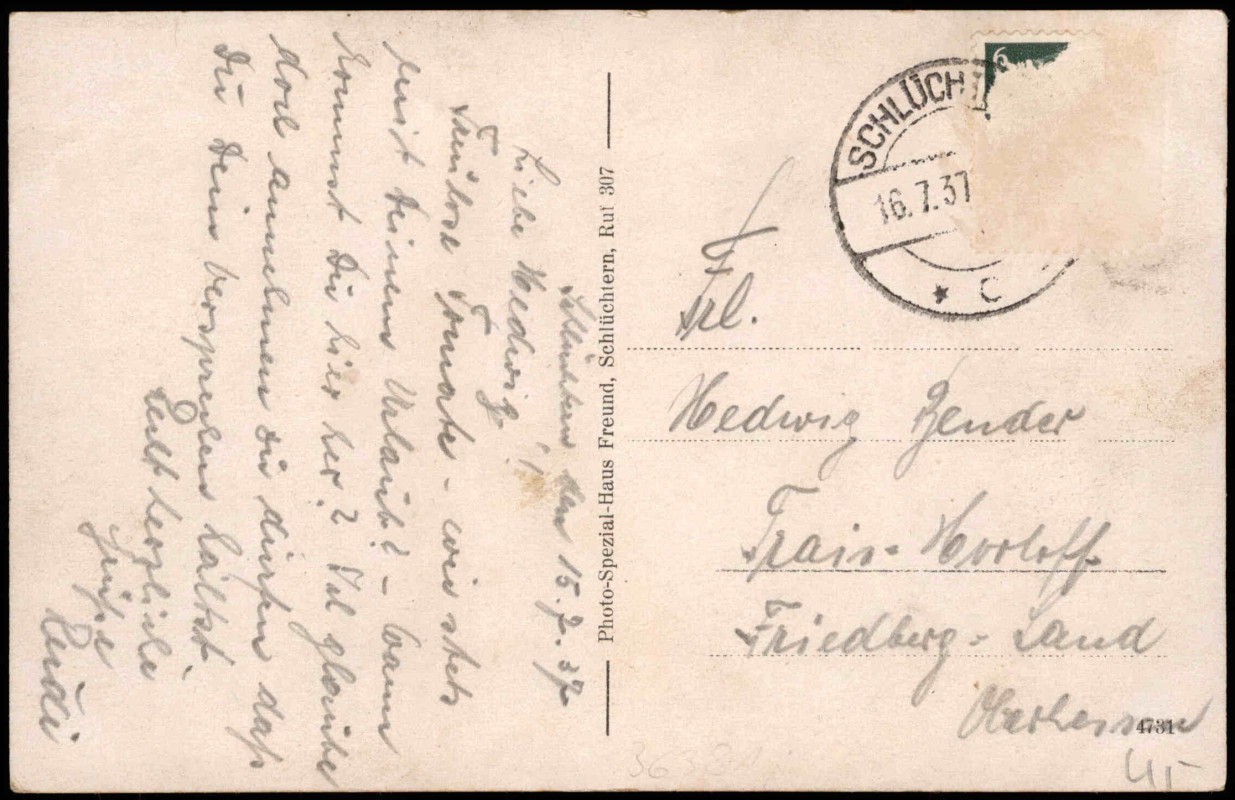 Schlüchtern den 15.7.37
Liebe Hedwig!
Famose Tomate - wie stets
seist Deinem Urlaub? - Wann
kommst Du hier her? Ich glaube
doch annehmen zu dürfen daß
Du Dein versprechen hältst
Recht herzliche
Grüße
Rudi
Photo-Spezial-Haus Freund, Schlüchtern, Ruf 307
6
SCHLÜCHT
16.7.37
* C
Frl.
Hedwig Bender
Trais-Horloff
Friedberg-Land
Oberhessen
4731